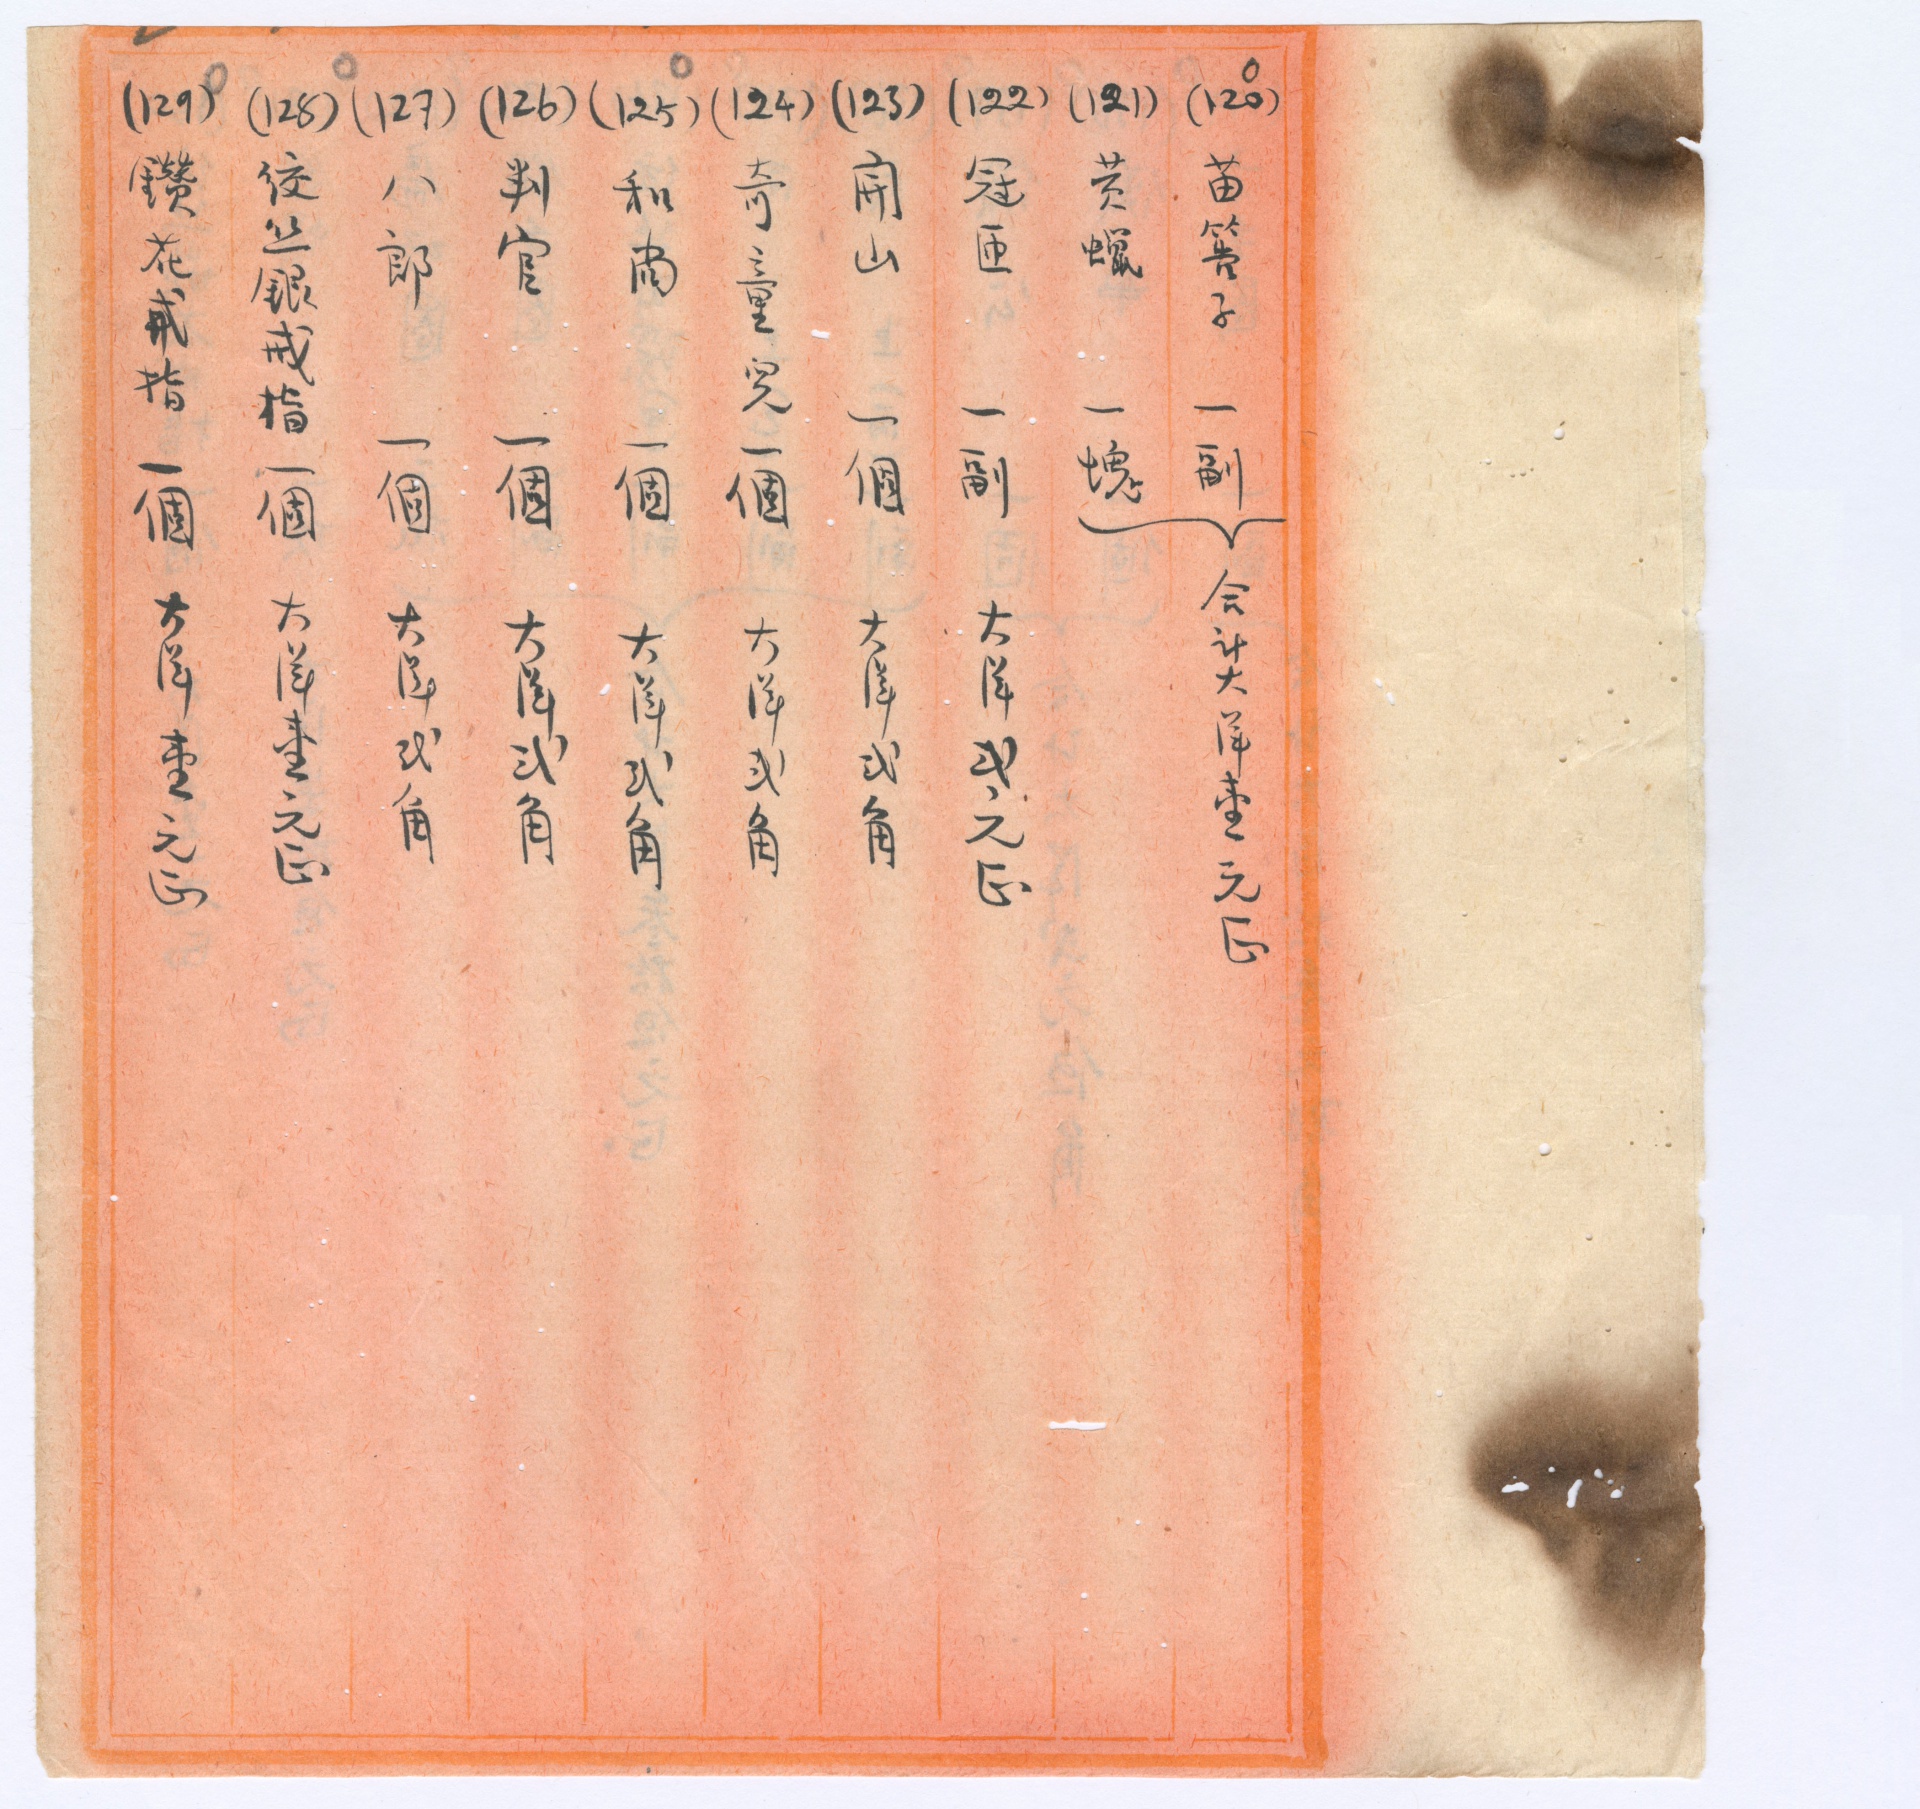 (120) 苗筶子 一副
(121) 黄蠟 一塊
合计大洋壹元正
(122) 冠匝 一副 大洋弍元正
(123) 開山 一個 大洋弍角
(124) 奇童児 一個 大洋弍角
(125) 和尚 一個 大洋弍角
(126) 判官 一個 大洋弍角
(127) 八郎 一個 大洋弍角
(128) 絞丝銀戒指 一個 大洋壹元正
(129) 鑽花戒指 一個 大洋壹元正